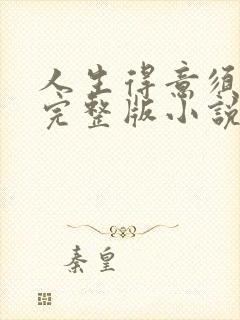 人生得意须
完整版小説
秦皇